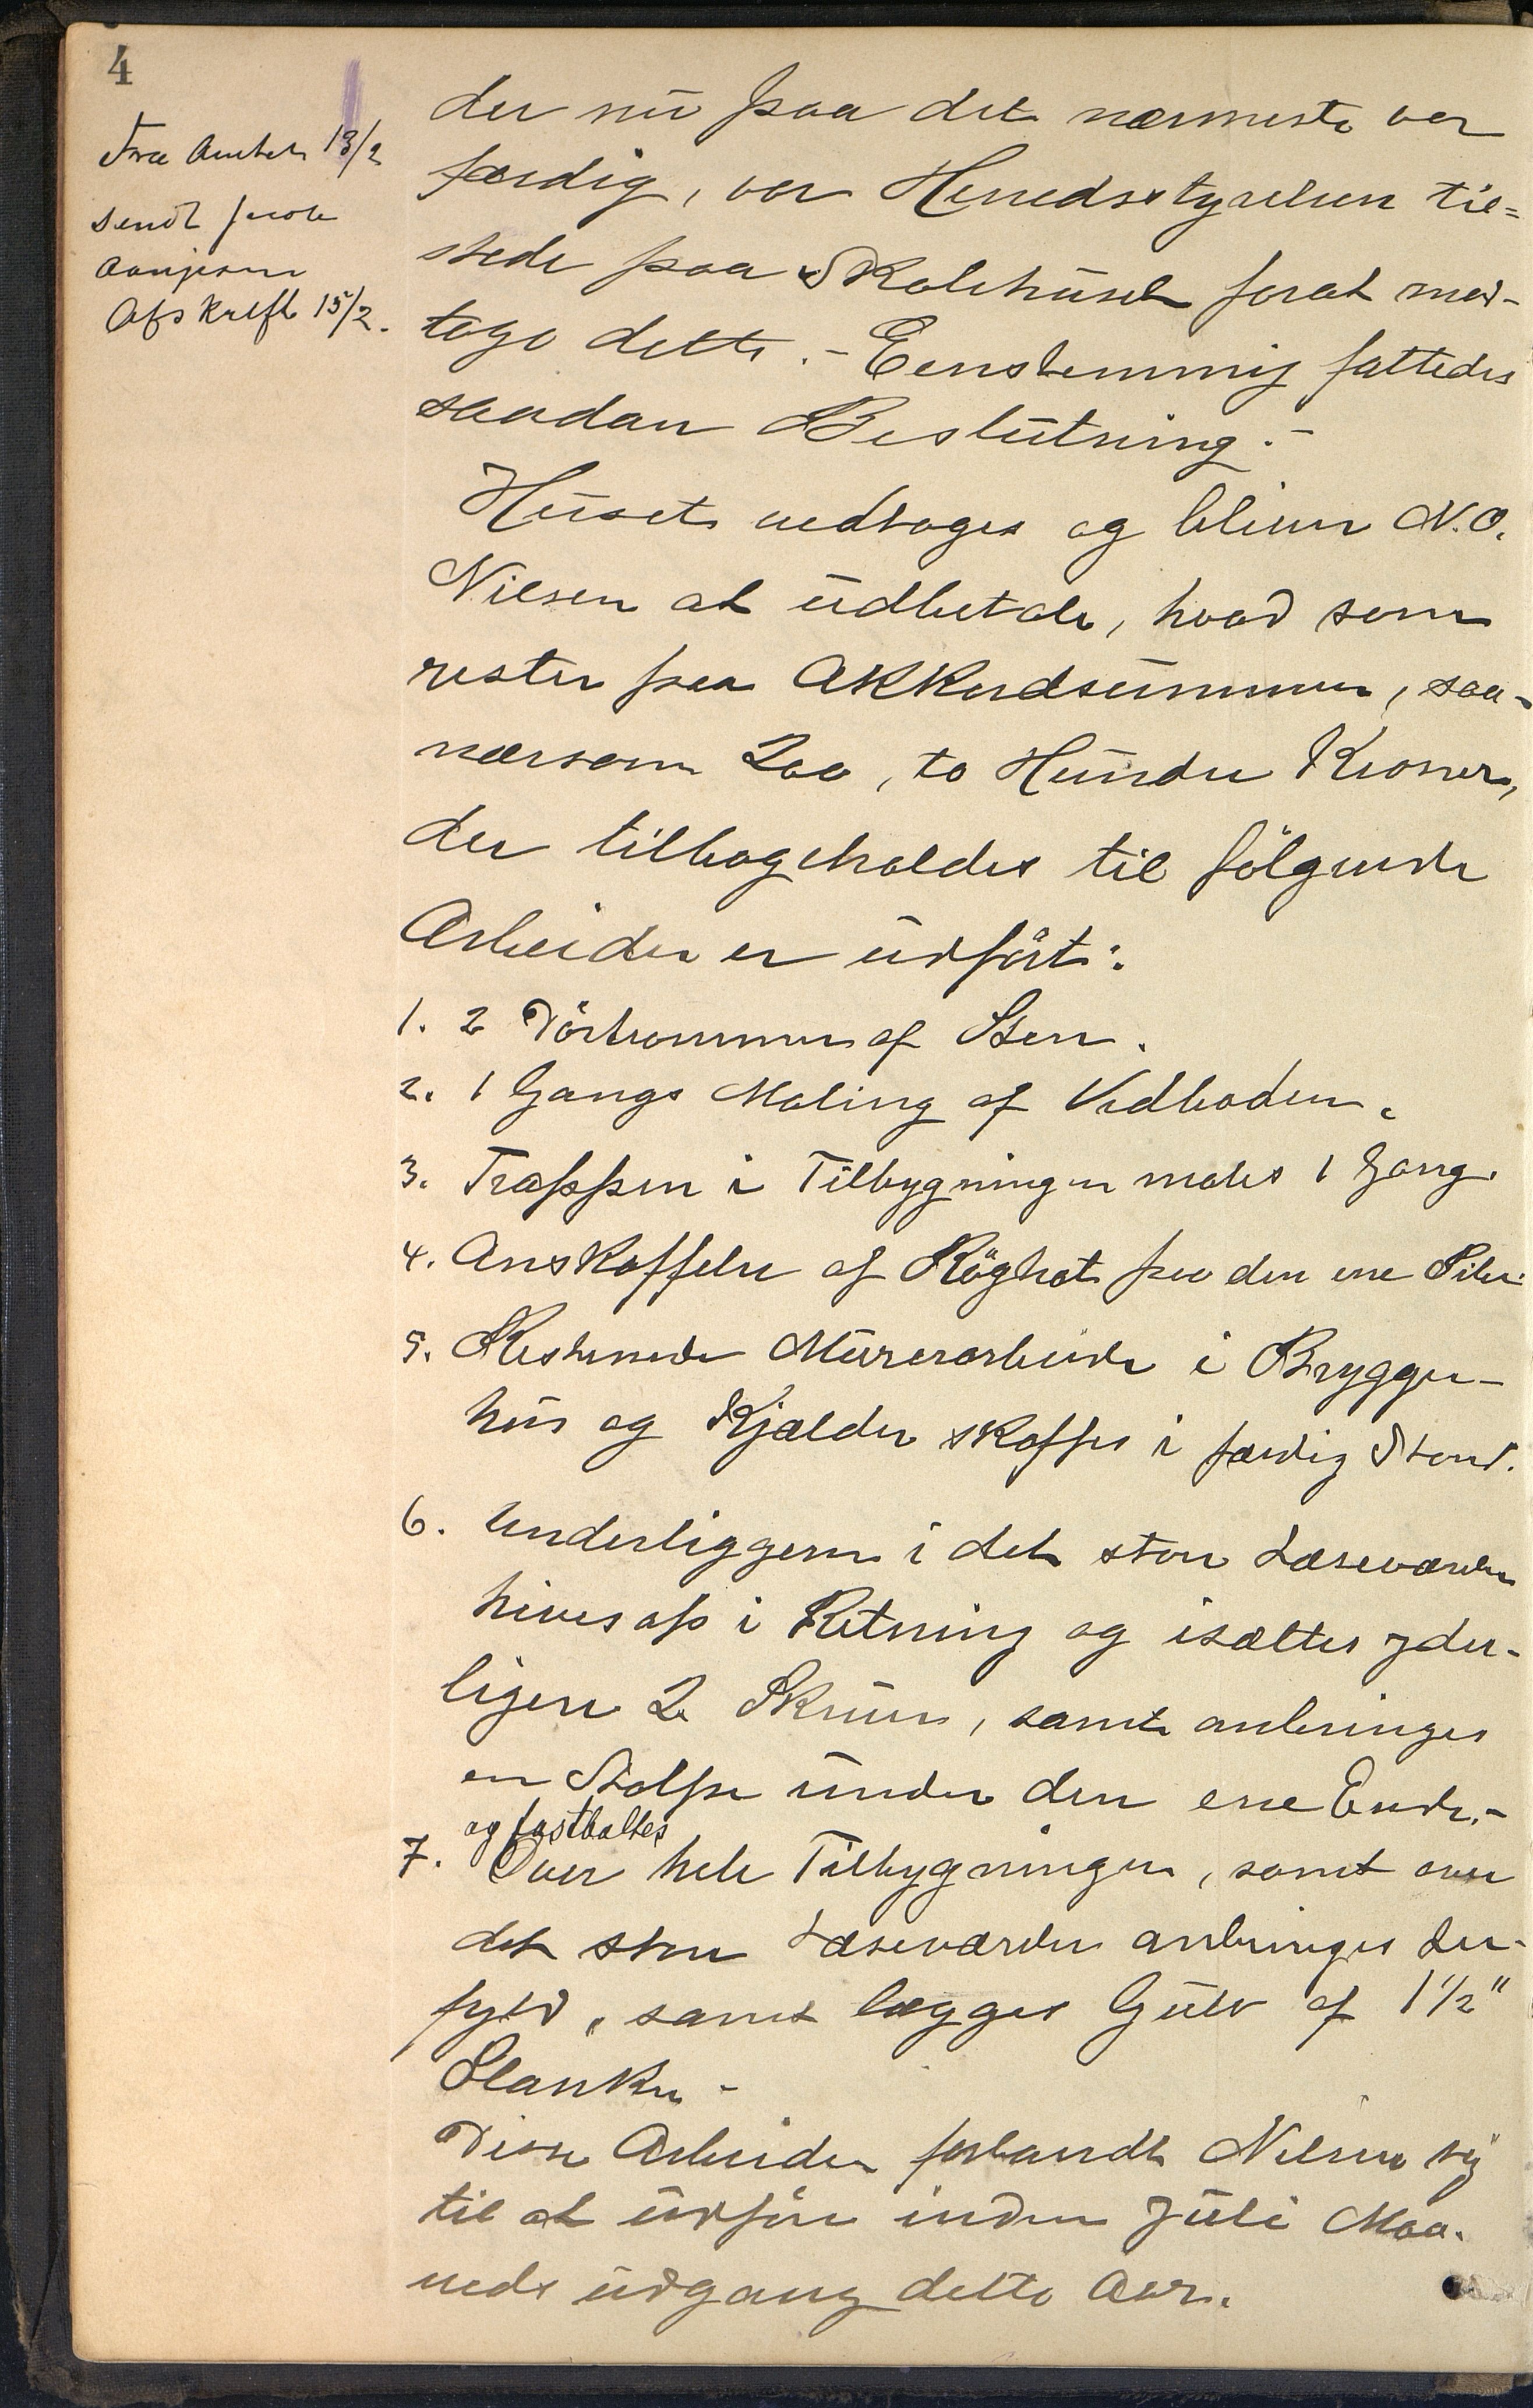 4
Fra Amtet 13/2
sendt Jacob
Aanjesen
Afskrift 15/2.
der nu paa det nærmeste var
færdig, var Herredsstyrelsen til=
stede paa Skolehuset forat mod-
tage dette. - Eenstemmig fattedes
saadan Beslutning. -
Huset vedtoges og bliver N. O.
Nilsen at udbetale, hvad som
rester paa Akkordsummen, saa-
nærsom 200, to Hundre Kroner,
der tilbageholdes til følgende
Arbeider er udført:
1. 2 Dörtrommer af Sten.
2. 1 Gangs Maling af Vedboden.
3. Trappen i Tilbygningen males 1 Gang.
4. Anskaffelse af Röghat paa den ene Pibe.
5. Resterende Mürerarbeide i Brygger-
hus og Kjælder skaffes i færdig Stand.
6. Underliggeren i det store Læseværelse
hives op i Retning og isættes yder-
ligere 2 Skruer, samt anbringes
en Stolpe under den ene Ende. -
og fastboltes
7. Over hele Tilbygningen, samt over
det store Læseværelse anbringes Ler-
fyld, samt lægges Gulv af 1 1/2"
Planker -
Disse Arbeider forbandt Nilsen sig
til at udføre inden Juli Maa-
neds udgang dette Aar.